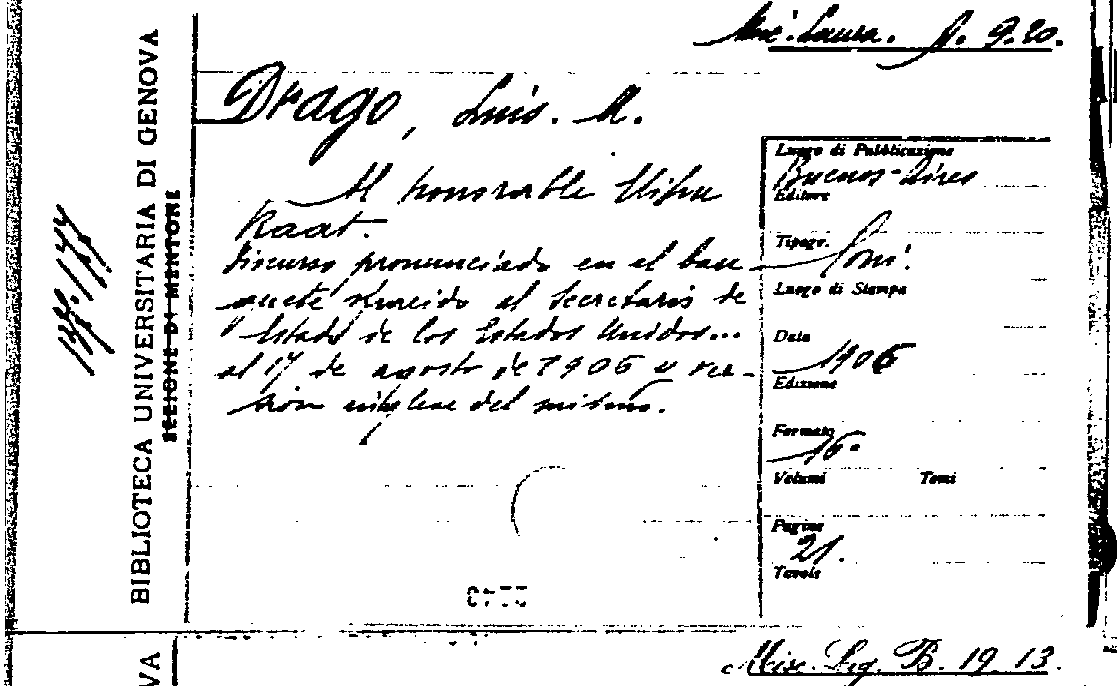 Misc. Laura. J. 9.20.
Drago, Luis. M.
Al honorable Elihu
Root.
Discurso pronunciado en el ban
quete ofrecido al Secretario de
Estado de los Estados Unidos...
el 17 de agosto de 1906 y ver-
sión inglese del mismo.
BIBLIOTECA UNIVERSITARIA DI GENOVA
SEZIONE DI MENTONE
Luogo di Pubblicazione
Buenos-Aires
Editore
Tipogr.
Coni.
Luogo di Stampa
Data
1906
Edizione
Formato
16°
Volumi Tomi
Pagine
21.
Tavole
VA
Misc. Leg. B. 19 13.